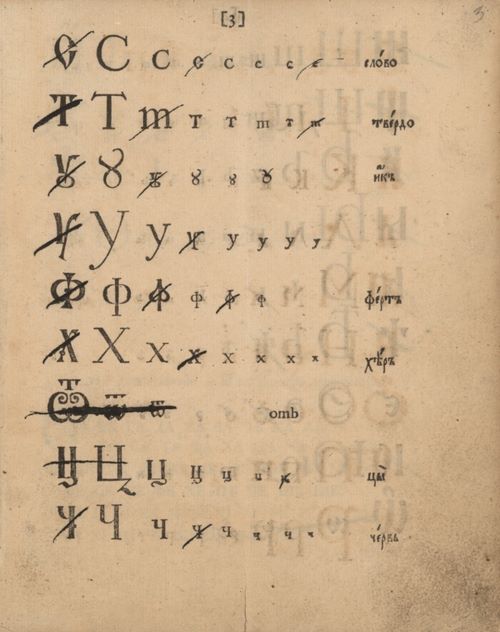 [3] 3
С С С с с с с с слово
Т Т т т т т т т твердо
Ꙋ Ꙋ ꙋ ꙋ ꙋ ꙋ икъ
У У У у у у у у
Ф Ф Ф ф ф ф фертъ
Х Х Х х х х х х хѣръ
Ѿ Ѿ ѿ отъ
Ц Ц Ц ц ц ц ц цы
Ч Ч Ч ч ч ч ч ч червь